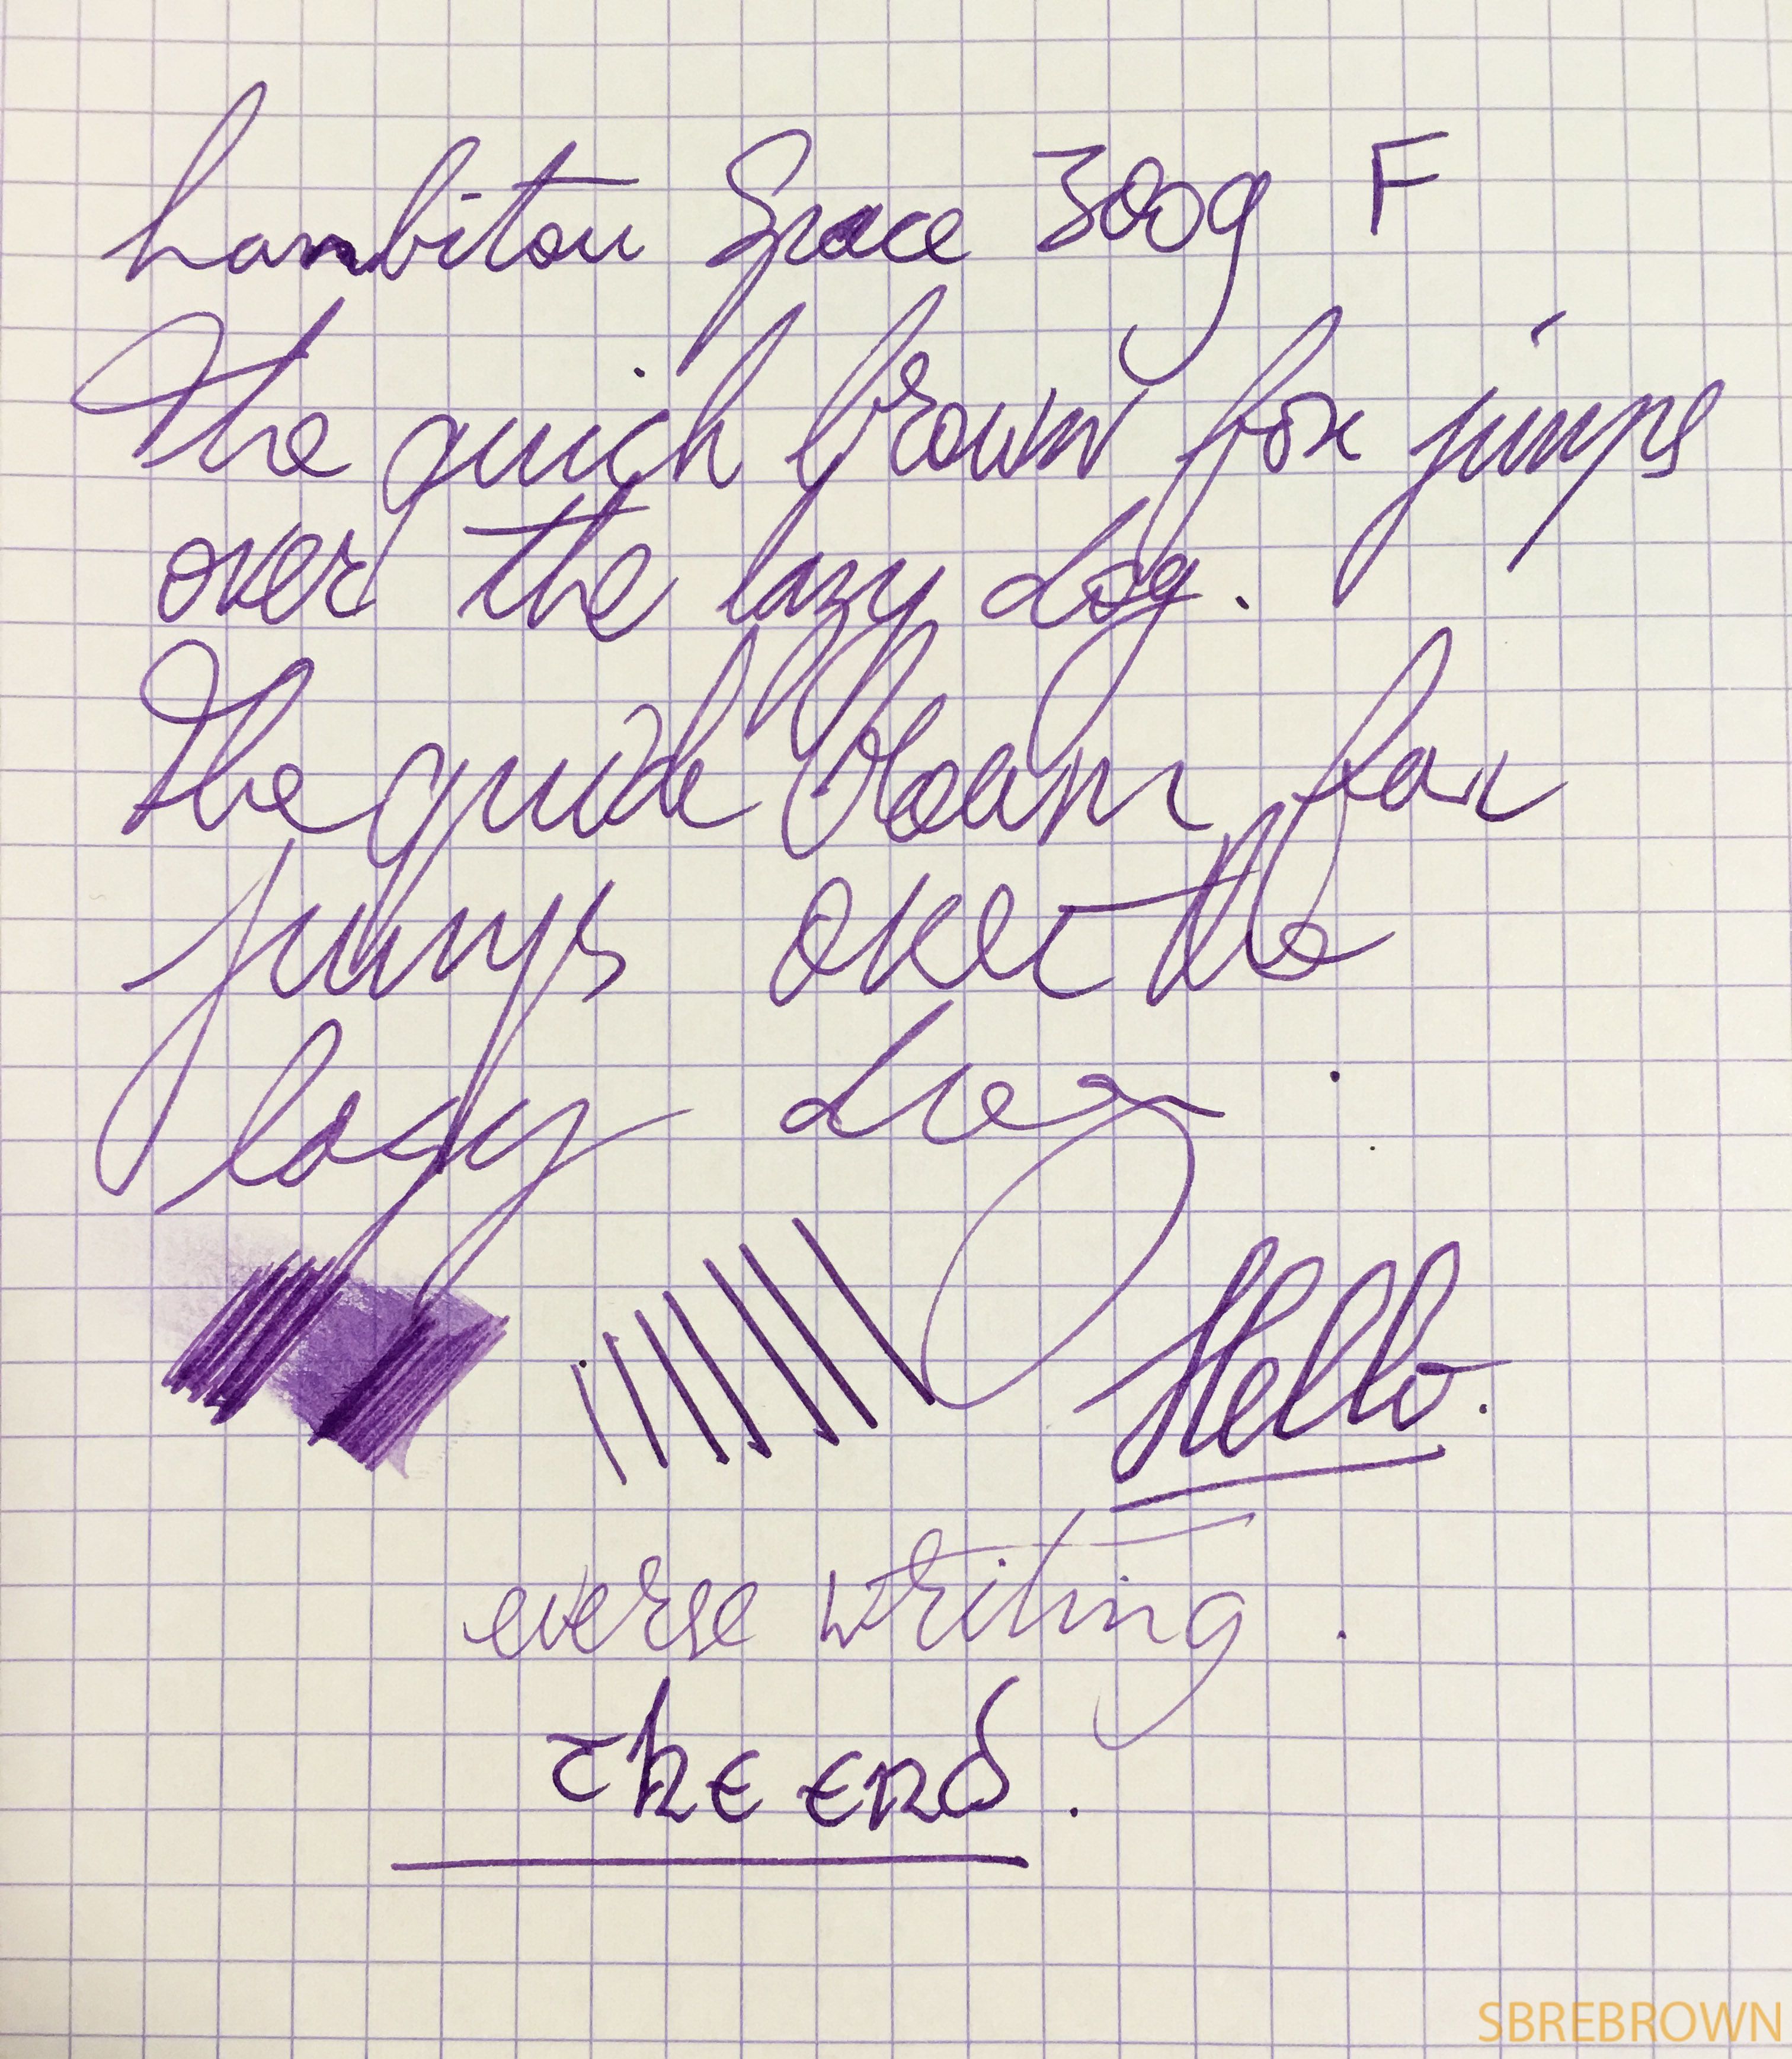 Lanbitou Space 3009 F
The quick brown fox jumps
over the lazy dog.
The quick brown fox
jumps over the
lazy dog.
Hello.
everse writing.
the end.
SBREBROWN